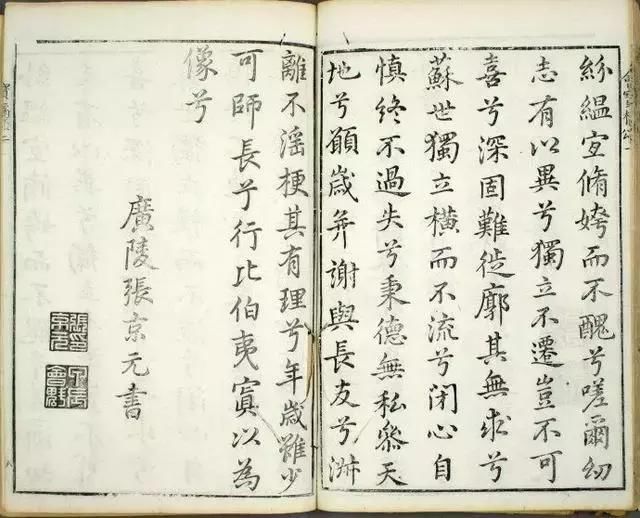 紛緼宜脩姱而不醜兮嗟爾幼
志有以異兮獨立不遷豈不可
喜兮深固難徙廓其無求兮
蘇世獨立橫而不流兮閉心自
慎終不過失兮秉德無私叅天
地兮願歲并謝與長友兮淑
離不滛梗其有理兮年歲雖少
可師長兮行比伯夷寘以為
像兮
廣陵張京元書